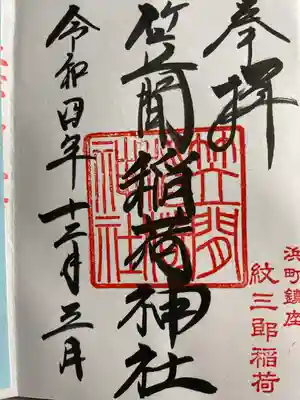 奉拝
浜町鎮座
紋三郎稲荷
笠間稲荷神社
笠間稲荷神社
令和四年十二月三日